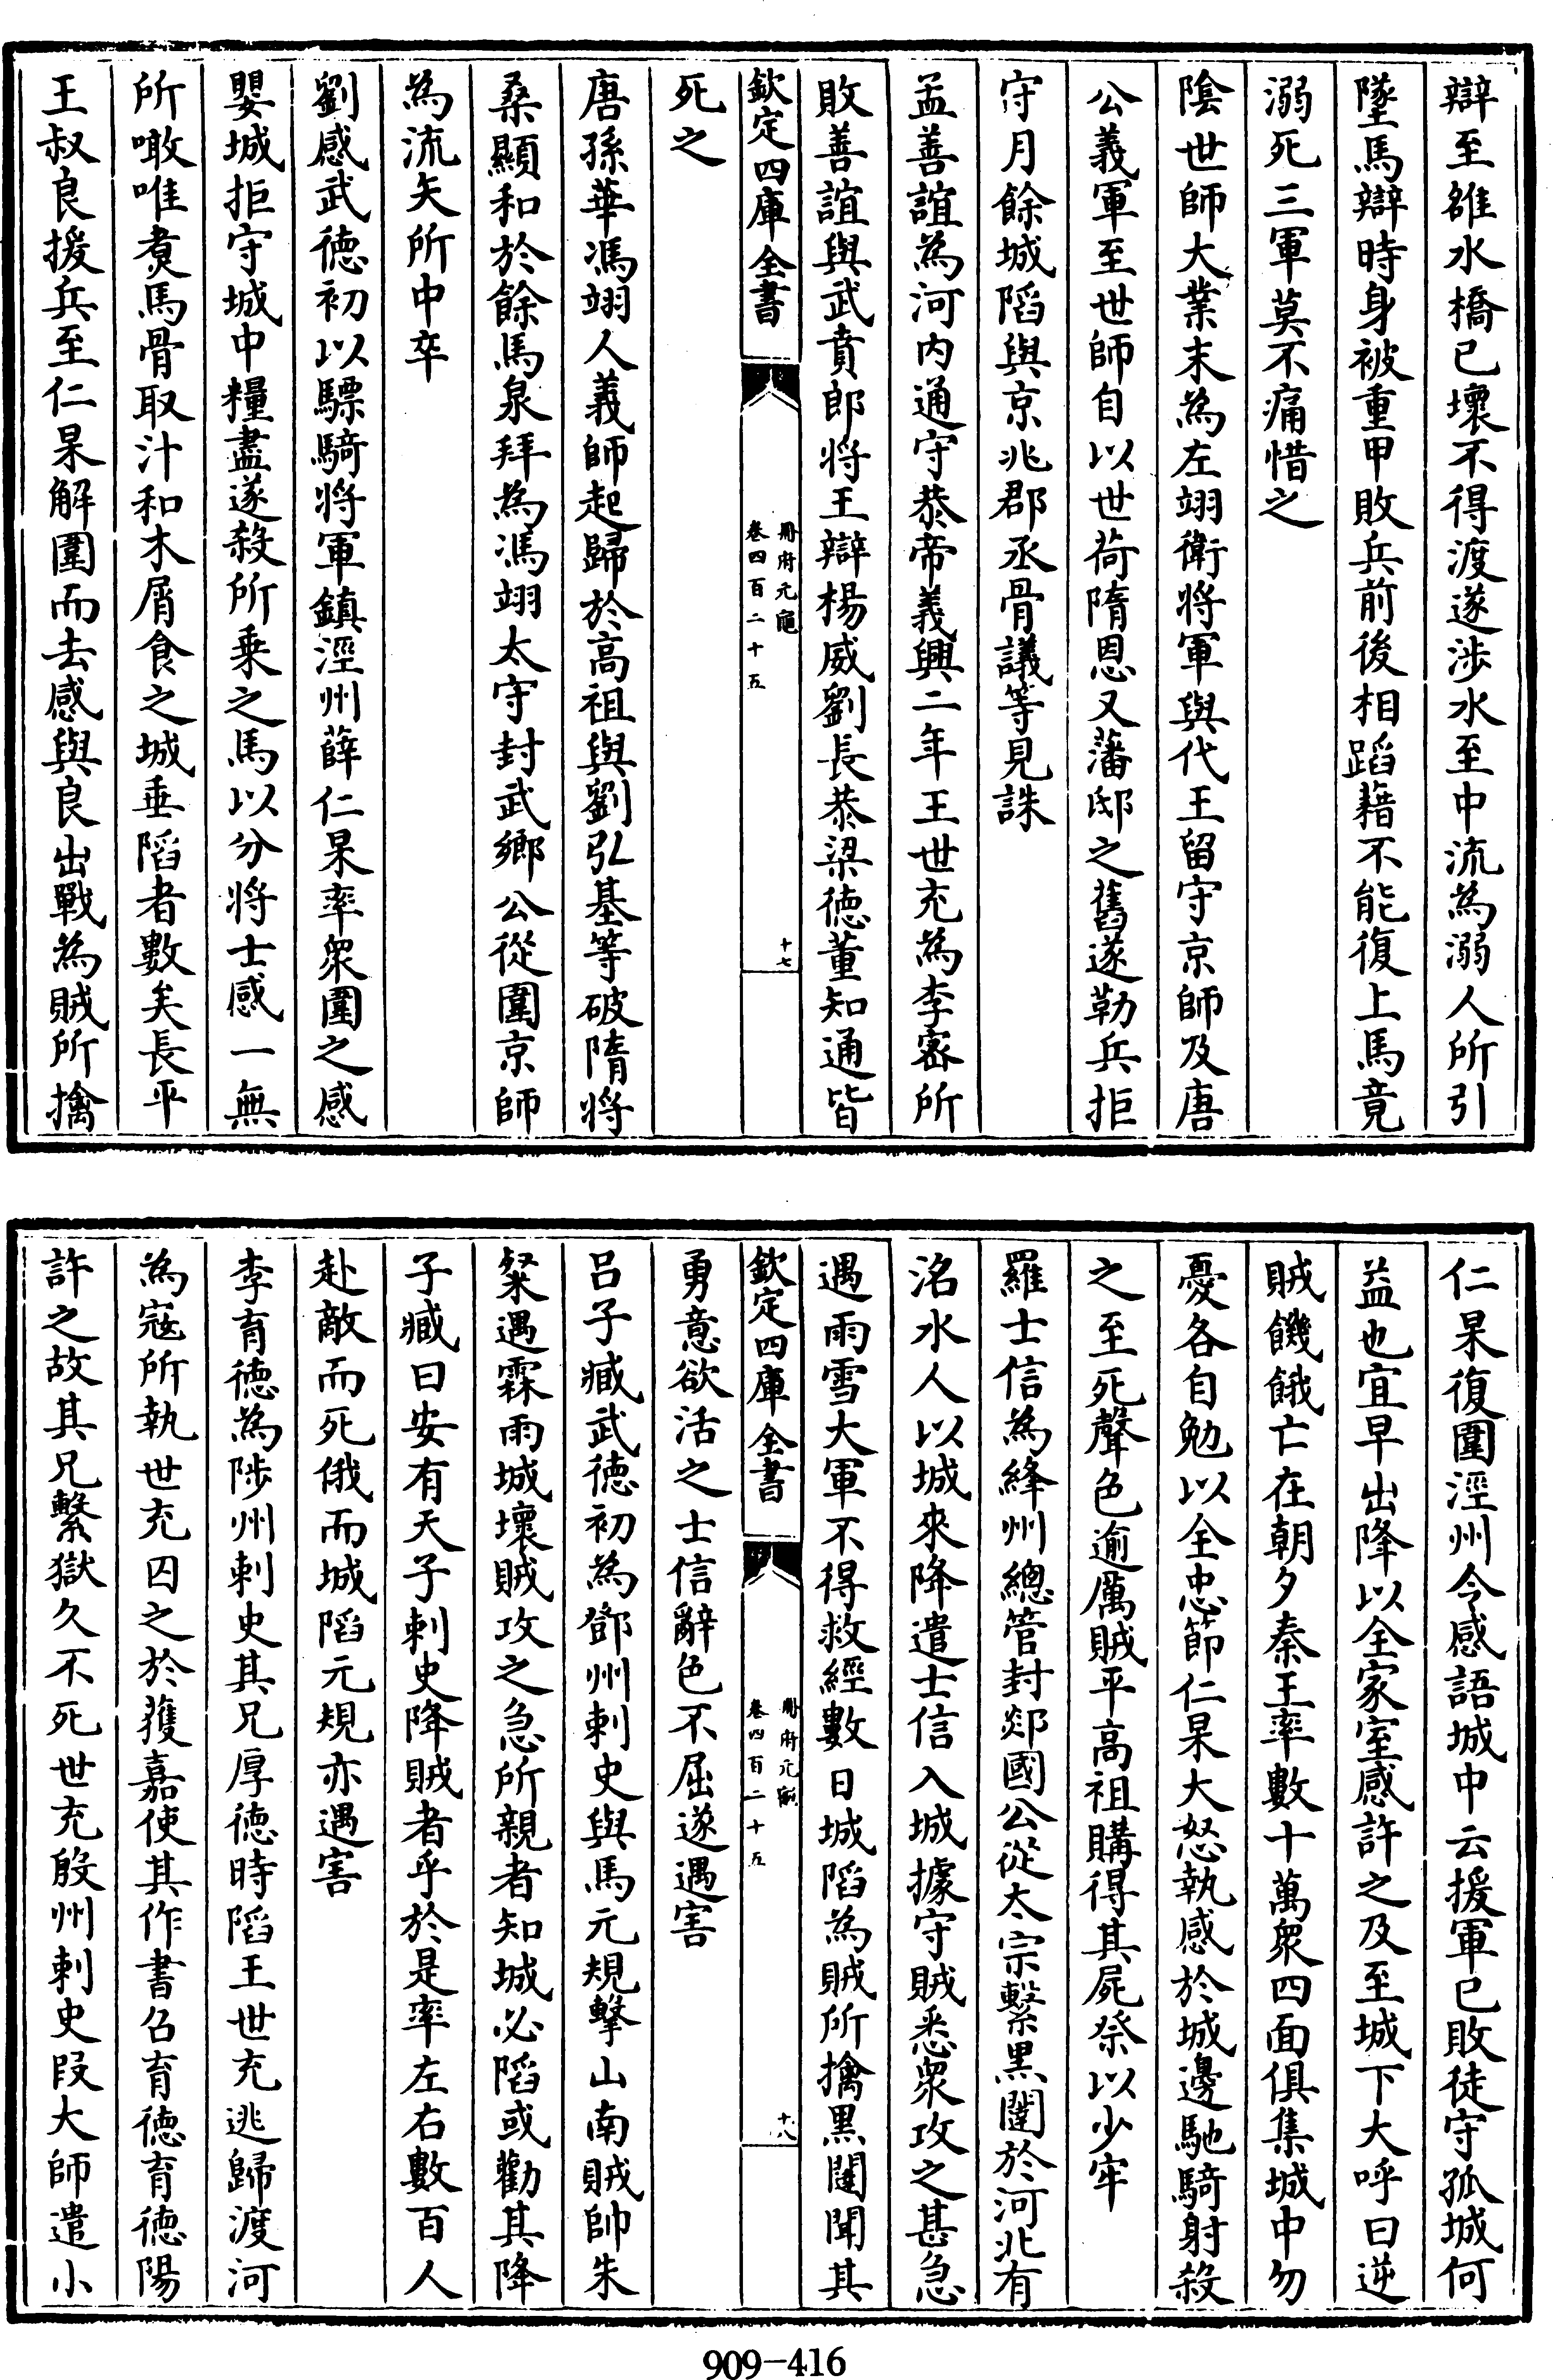 辯至雒水橋已壞不得渡遂涉水至中流為溺人所引
墜馬辯時身被重甲敗兵前後相蹈藉不能復上馬竟
溺死三軍莫不痛惜之
陰世師大業末為左翊衛將軍與代王留守京師及唐
公義軍至世師自以世荷隋恩又藩邸之舊遂勒兵拒
守月餘城䧟與京兆郡丞骨議等見誅
孟善誼為河內通守恭帝義興二年王世充為李宻所
敗善誼與武賁郎將王辯楊威劉長恭梁徳董知通皆
欽定四庫全書
冊府元龜
卷四百二十五
十七
死之
唐孫華馮翊人義師起歸於高祖與劉弘基等破隋將
桑顯和於餘馬泉拜為馮翊太守封武鄉公從圍京師
為流矢所中卒
劉感武徳初以驃騎將軍鎮涇州薛仁杲率衆圍之感
嬰城拒守城中糧盡遂殺所乗之馬以分將士感一無
所噉唯煑馬骨取汁和木屑食之城垂䧟者數矣長平
王叔良援兵至仁杲解圍而去感與良出戰為賊所擒
仁杲復圍涇州令感語城中云援軍已敗徒守孤城何
益也宜早出降以全家室感許之及至城下大呼曰逆
賊饑餓亡在朝夕秦王率數十萬衆四面俱集城中勿
憂各自勉以全忠節仁杲大怒執感於城邊馳騎射殺
之至死聲色逾厲賊平高祖購得其屍祭以少牢
羅士信為絳州總管封郯國公從太宗繫黑闥於河北有
洺水人以城來降遣士信入城據守賊悉衆攻之甚急
遇雨雪大軍不得救經數日城䧟為賊所擒黑闥聞其
欽定四庫全書
冊府元龜
卷四百二十五
十八
勇意欲活之士信辭色不屈遂遇害
吕子臧武徳初為鄧州刺史與馬元規擊山南賊帥朱
粲遇霖雨城壞賊攻之急所親者知城必䧟或勸其降
子臧曰安有天子刺史降賊者乎於是率左右數百人
赴敵而死俄而城䧟元規亦遇害
李育徳為陟州刺史其兄厚徳時䧟王世充逃歸渡河
為寇所執世充囚之於獲嘉使其作書召育徳育徳陽
許之故其兄繫獄久不死世充殷州刺史段大師遣小
909-416